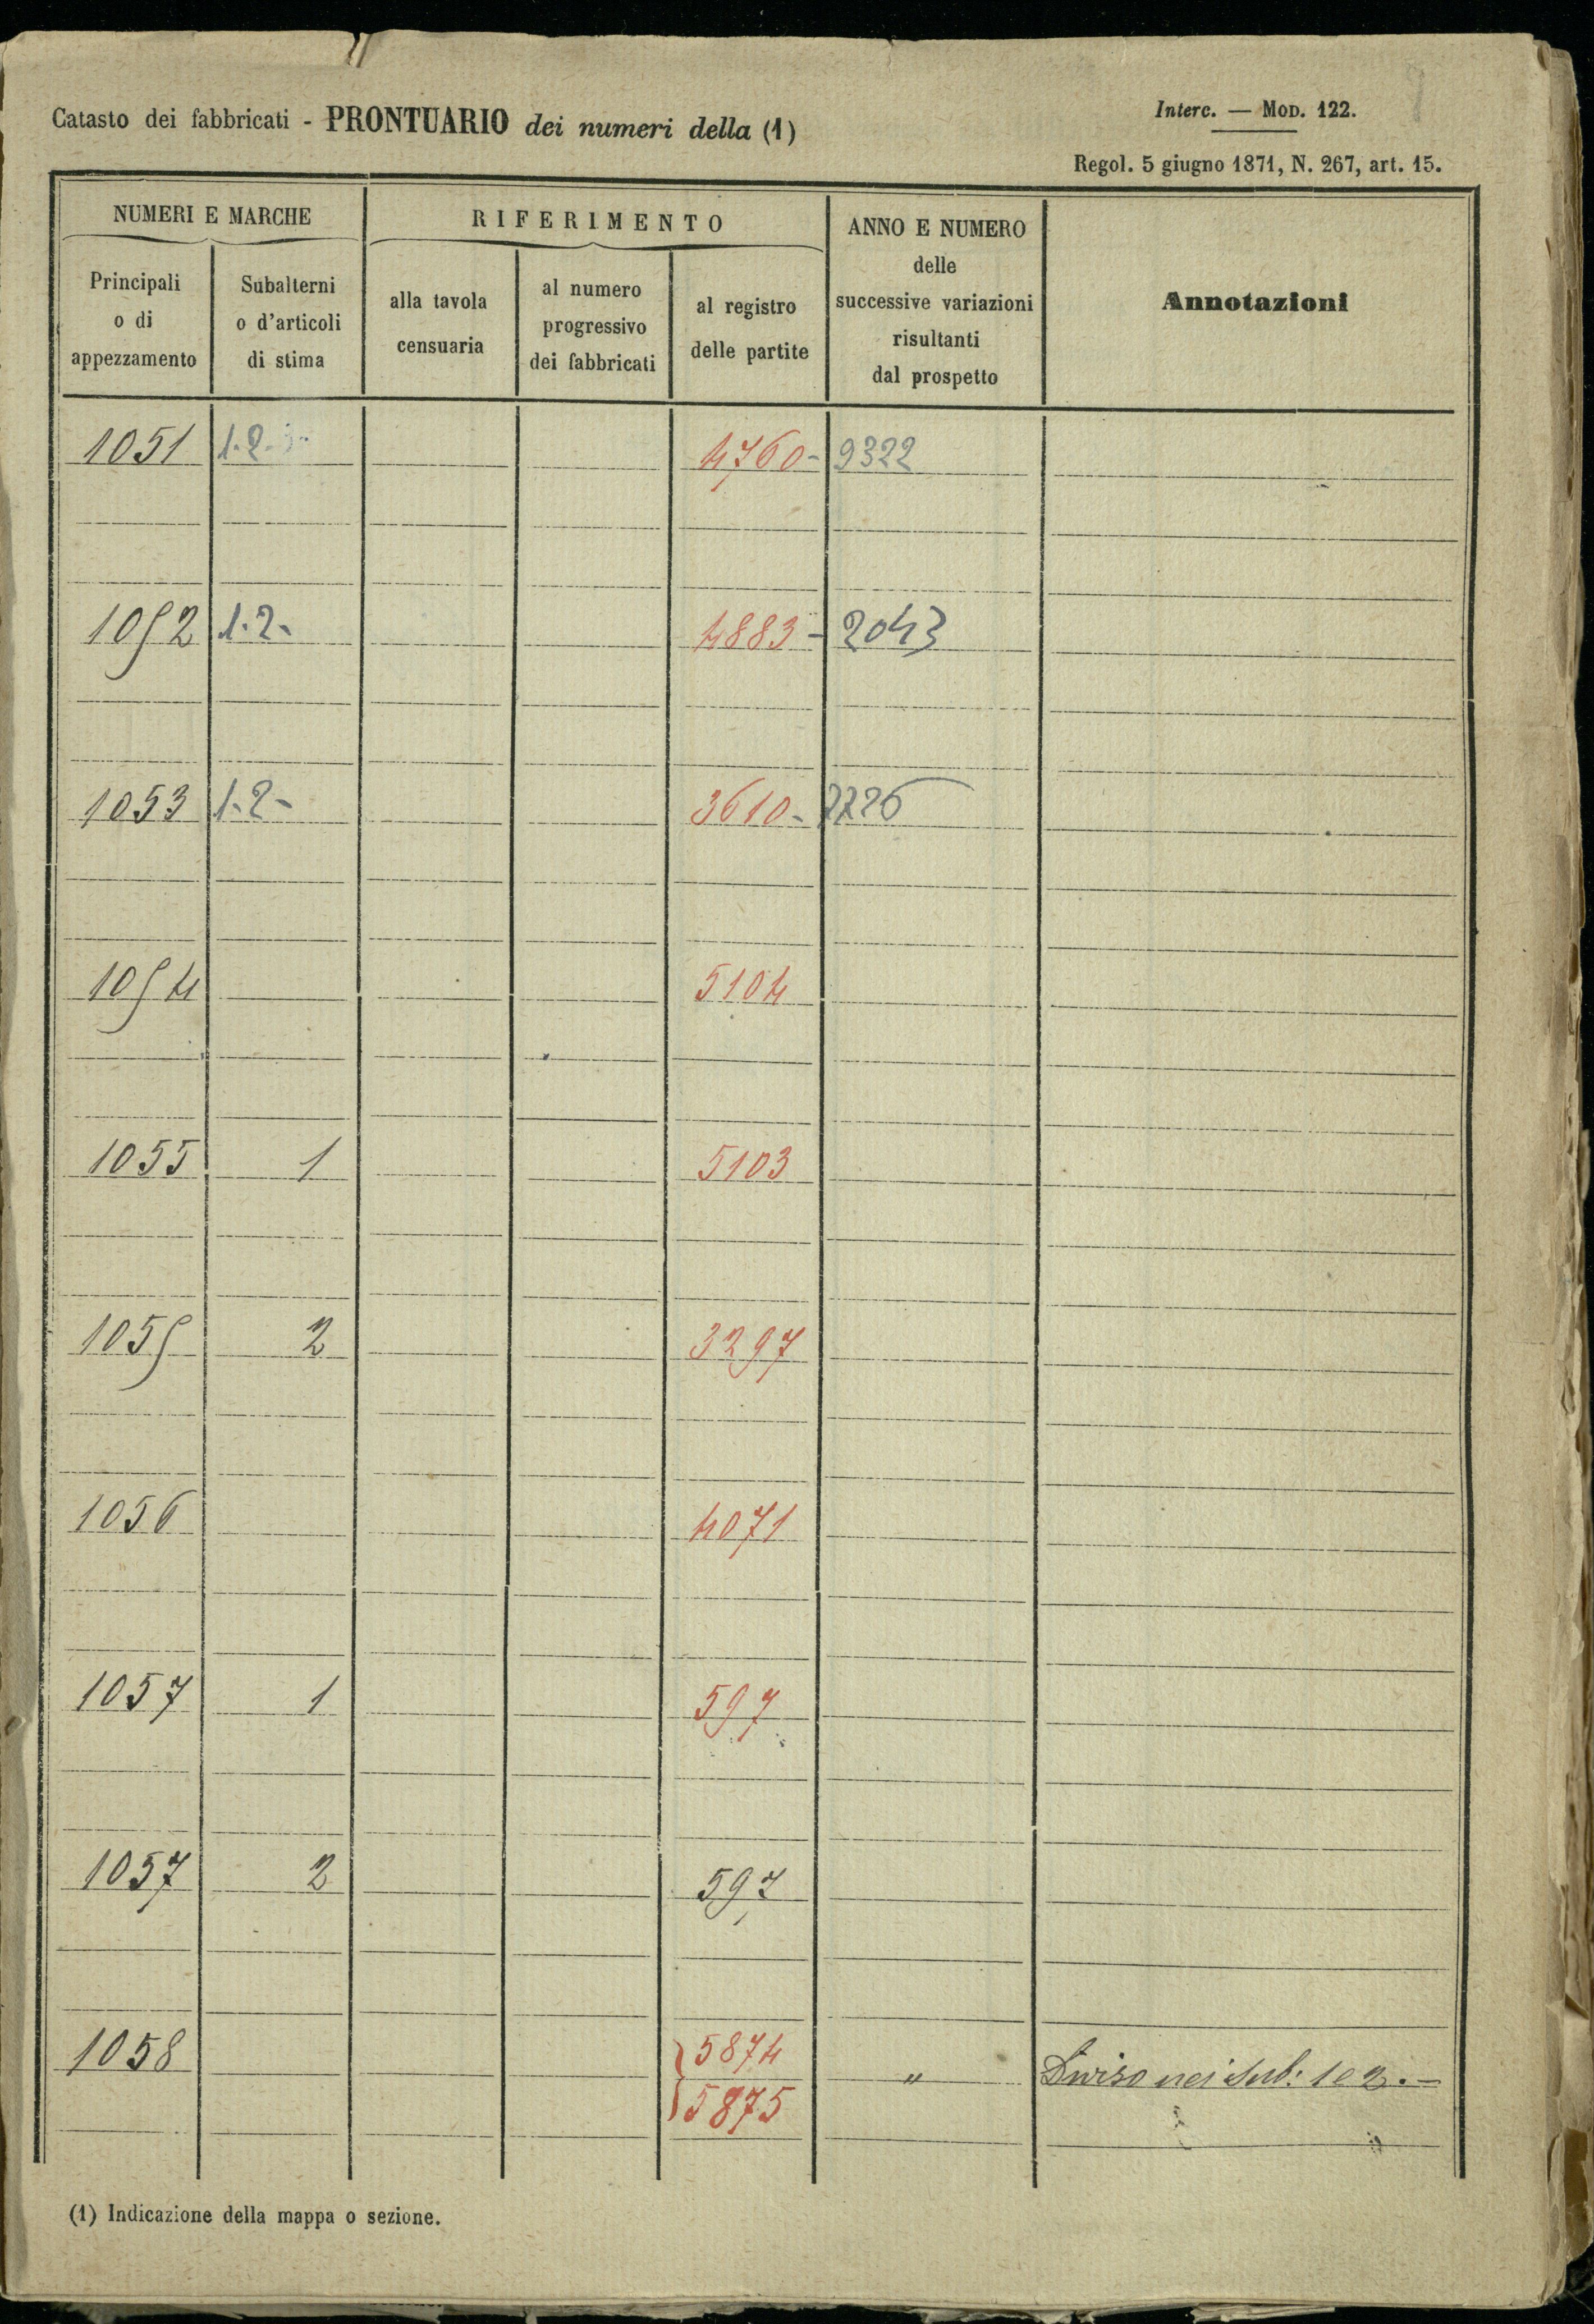 Catasto dei fabbricati - PRONTUARIO dei numeri della (1)
Interc. — Mod. 122.
Regol. 5 giugno 1871, N. 267, art. 15.
NUMERI E MARCHE
RIFERIMENTO
ANNO E NUMERO
delle
successive variazioni
risultanti
dal prospetto
Annotazioni
Principali
o di
appezzamento
Subalterni
o d'articoli
di stima
alla tavola
censuaria
al numero
progressivo
dei fabbricati
al registro
delle partite
1051 1.2. 4760- 9322
1052 1.2- 4883- 2043
1053 1.2- 3610-
1054 5104
1055 1 5103
1055 2 3297
1056 4071
1057 1 597
1057 2 597
1058 { 5874 " Diviso nei sub: 1 e 2.-
5875
(1) Indicazione della mappa o sezione.